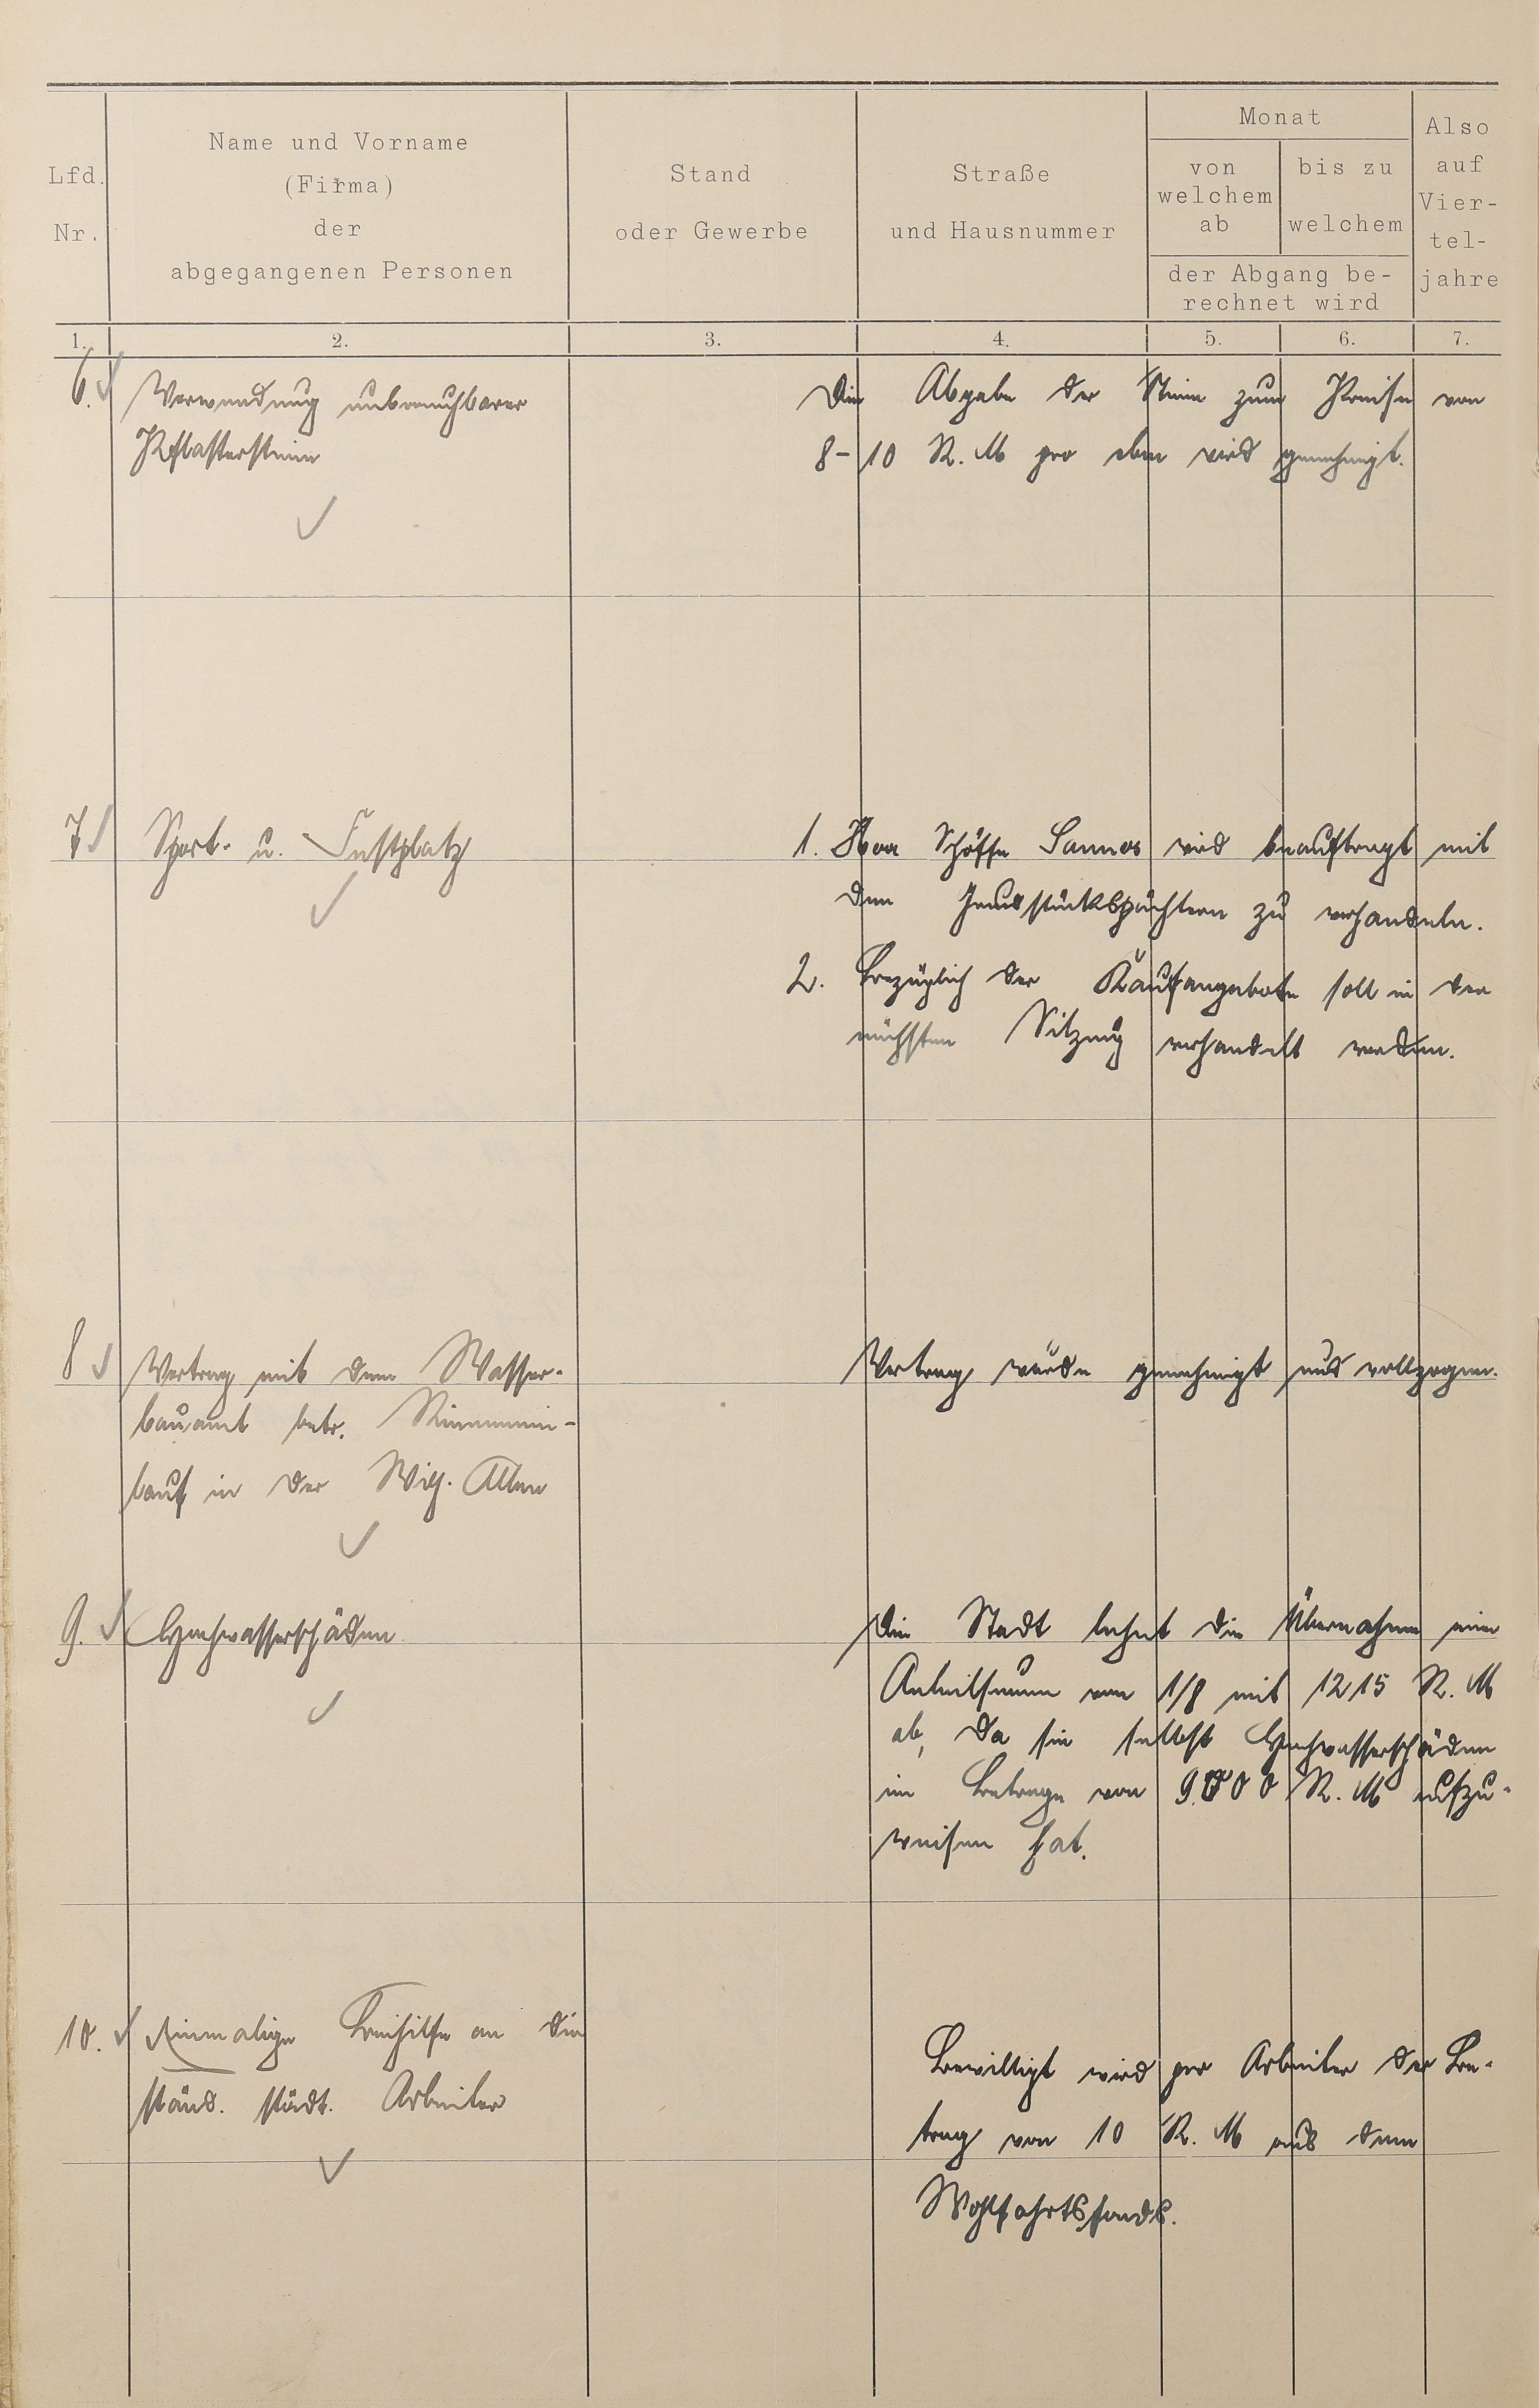 Lfd. Nr.
Name und Vorname
(Firma)
der
abgegangenen Personen
Stand
oder Gewerbe
Straße
und Hausnummer
Monat
von welchem ab
bis zu welchem
der Abgang be-
rechnet wird
Also auf Vier-
tel-
jahre
1. 2. 3. 4. 5. 6. 7.
6. Verwendung unbrauchbarer
Pflastersteine
Die Abgabe der Steine zum Preise von
8-10 R.M pro cbm wird genehmigt.
7 Sport- u. Festplatz
1. Herr Schöffe Sannes wird beauftragt mit
den Grundstückspächtern zu verhandeln.
2. Bezüglich der Kaufangebote soll in der
nächsten Sitzung verhandelt werden.
8 Vertrag mit dem Wasser-
bauamt betr.
in der Wilh. Allee
Vertrag wurde genehmigt und vollzogen.
9. Hochwasserschäden
Die Stadt lehnt die Übernahme einer
Anteilsumme von 1/8 mit 1215 R.M
ab, da sie selbst Hochwasserschäden
im Betrage von R.M aufzu-
weisen hat.
10. Einmalige Beihilfe an die
ständ. städt. Arbeiter
Bewilligt wird pro Arbeiter der Be-
trag von 10 R.M aus dem
Wohlfahrtsfonds.